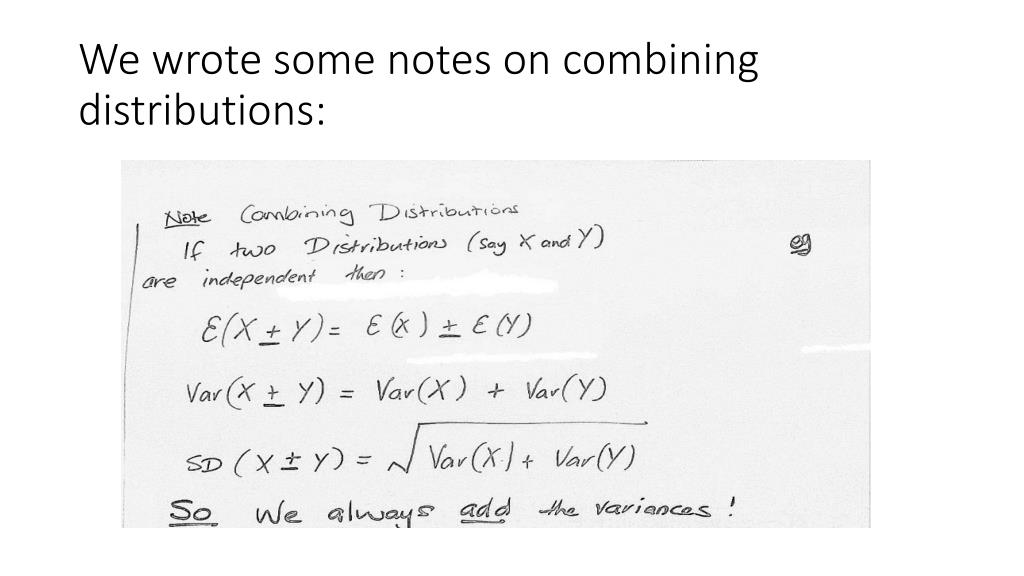 We wrote some notes on combining
distributions:
Note Combining Distributions
If two Distributions (say X and Y)
eg
are independent then :
E(X ± Y) = E(X) ± E(Y)
Var(X ± Y) = Var(X) + Var(Y)
SD (X ± Y) = √Var(X) + Var(Y)
So We always add the variances !